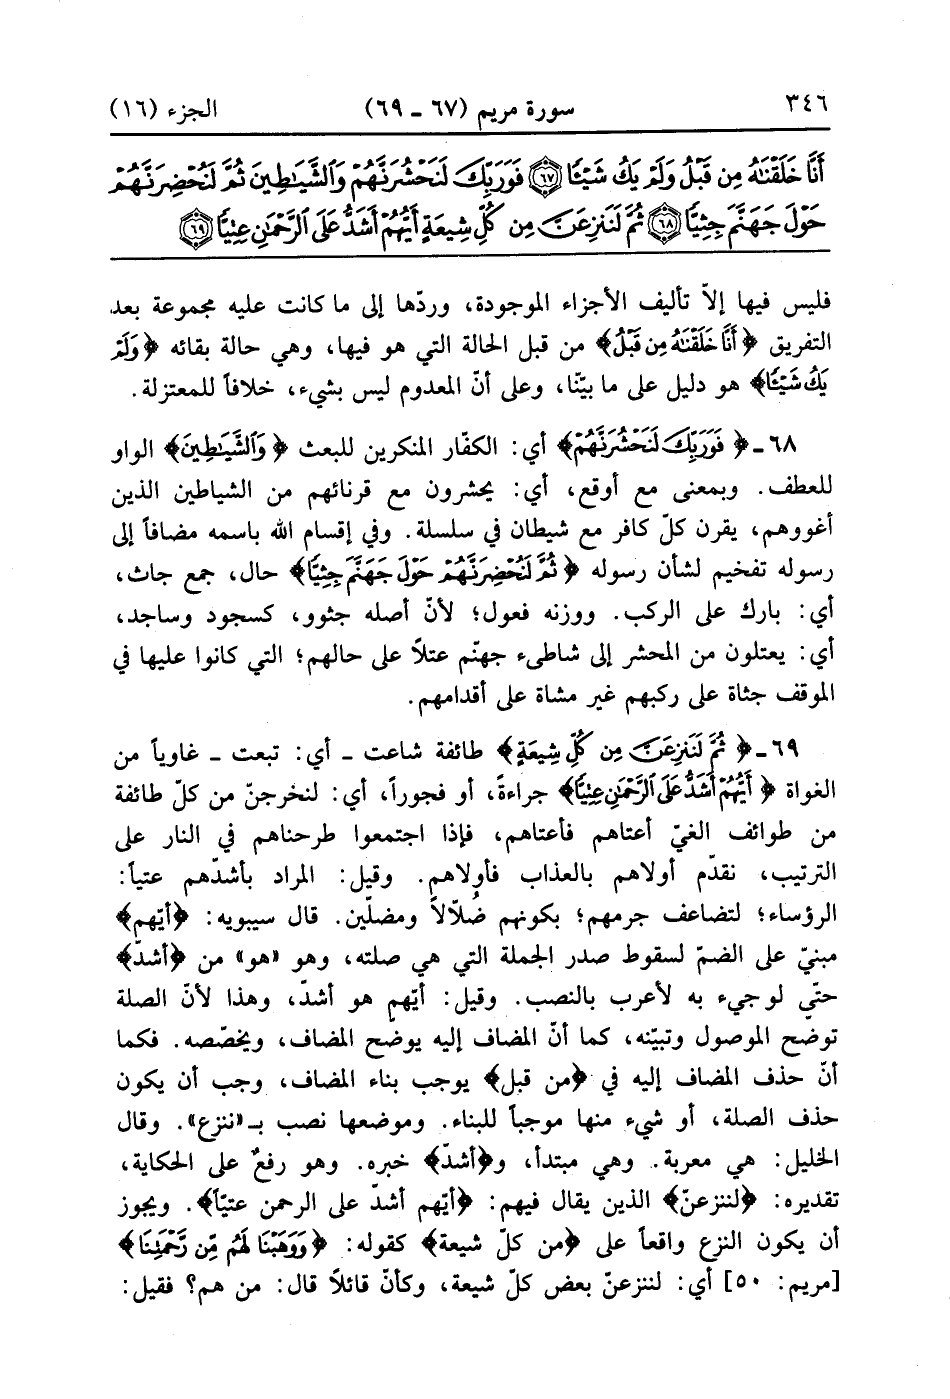 ٣٤٦
سورة مريم (٦٧ ـ ٦٩)
الجزء (١٦)
أَنَّا خَلَقْنَٰهُ مِن قَبْلُ وَلَمْ يَكُ شَيْـًٔا ٦٧ فَوَرَبِّكَ لَنَحْشُرَنَّهُمْ وَالشَّيَٰطِينَ ثُمَّ لَنُحْضِرَنَّهُمْ
حَوْلَ جَهَنَّمَ جِثِيًّا ٦٨ ثُمَّ لَنَنزِعَنَّ مِن كُلِّ شِيعَةٍ أَيُّهُمْ أَشَدُّ عَلَى الرَّحْمَٰنِ عِتِيًّا ٦٩
فليس فيها إلاّ تأليف الأجزاء الموجودة، وردّها إلى ما كانت عليه مجموعة بعد
التفريق ﴿أَنَّا خَلَقْنَٰهُ مِن قَبْلُ﴾ من قبل الحالة التي هو فيها، وهي حالة بقائه ﴿وَلَمْ
يَكُ شَيْـًٔا﴾ هو دليل على ما بيّنّا، وعلى أنّ المعدوم ليس بشيء، خلافاً للمعتزلة.
٦٨ ـ ﴿فَوَرَبِّكَ لَنَحْشُرَنَّهُمْ﴾ أي: الكفّار المنكرين للبعث ﴿وَالشَّيَٰطِينَ﴾ الواو
للعطف. وبمعنى مع أوقع، أي: يحشرون مع قرنائهم من الشياطين الذين
أغووهم، يقرن كلّ كافر مع شيطان في سلسلة. وفي إقسام الله باسمه مضافاً إلى
رسوله تفخيم لشأن رسوله ﴿ثُمَّ لَنُحْضِرَنَّهُمْ حَوْلَ جَهَنَّمَ جِثِيًّا﴾ حال، جمع جاث،
أي: بارك على الركب. ووزنه فعول؛ لأنّ أصله جثوو، كسجود وساجد،
أي: يعتلون من المحشر إلى شاطىء جهنّم عتلاً على حالهم؛ التي كانوا عليها في
الموقف جثاة على ركبهم غير مشاة على أقدامهم.
٦٩ ـ ﴿ثُمَّ لَنَنزِعَنَّ مِن كُلِّ شِيعَةٍ﴾ طائفة شاعت ـ أي: تبعت ـ غاوياً من
الغواة ﴿أَيُّهُمْ أَشَدُّ عَلَى الرَّحْمَٰنِ عِتِيًّا﴾ جراءةً، أو فجوراً، أي: لنخرجنّ من كلّ طائفة
من طوائف الغيّ أعتاهم فأعتاهم، فإذا اجتمعوا طرحناهم في النار على
الترتيب، نقدّم أولاهم بالعذاب فأولاهم. وقيل: المراد بأشدّهم عتياً:
الرؤساء؛ لتضاعف جرمهم؛ بكونهم ضُلّالاً ومضلّين. قال سيبويه: ﴿أيّهم﴾
مبنيّ على الضمّ لسقوط صدر الجملة التي هي صلته، وهو «هو» من ﴿أشدّ﴾
حتّى لو جيء به لأعرب بالنصب. وقيل: أيّهم هو أشدّ، وهذا لأنّ الصلة
توضح الموصول وتبيّنه، كما أنّ المضاف إليه يوضح المضاف، ويخصّصه. فكما
أنّ حذف المضاف إليه في ﴿من قبل﴾ يوجب بناء المضاف، وجب أن يكون
حذف الصلة، أو شيء منها موجباً للبناء. وموضعها نصب بـ«ننزع». وقال
الخليل: هي معربة. وهي مبتدأ، و﴿أشدّ﴾ خبره. وهو رفعٌ على الحكاية،
تقديره: ﴿لننزعنّ﴾ الذين يقال فيهم: ﴿أيّهم أشدّ على الرحمن عتيّاً﴾. ويجوز
أن يكون النزع واقعاً على ﴿من كلّ شيعة﴾ كقوله: ﴿وَوَهَبْنَا لَهُم مِّن رَّحْمَتِنَا﴾
[مريم: ٥٠] أي: لننزعنّ بعض كلّ شيعة، وكأنّ قائلاً قال: من هم؟ فقيل: